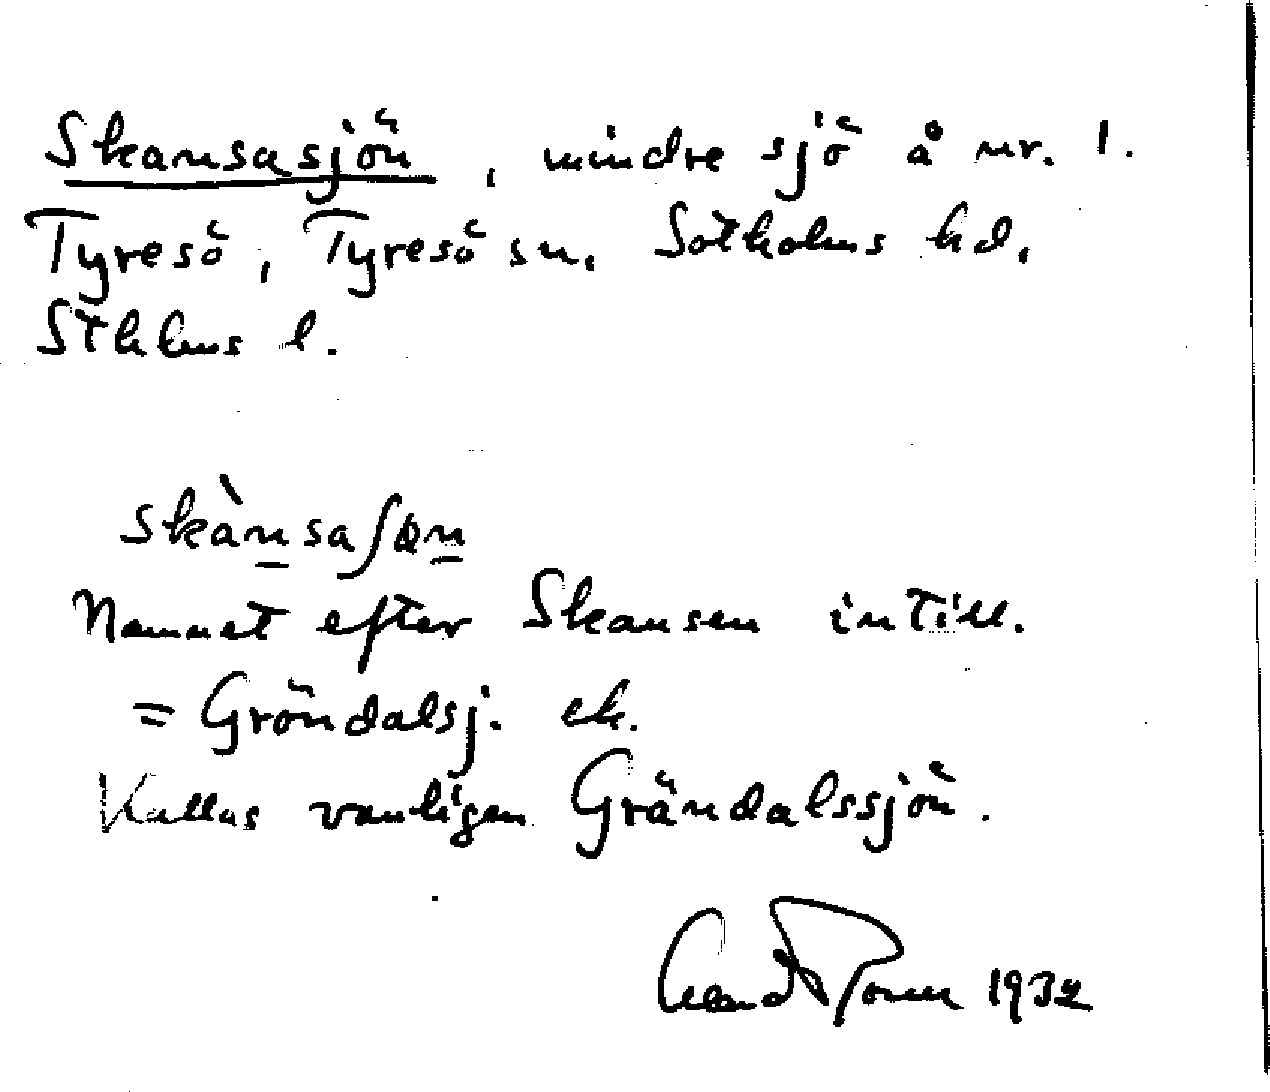 Skansasjön, mindre sjö å nr. 1.
Tyresö, Tyresö sn, Sotholms hd,
Sthlms l.
skànsaʃön
Namnet efter Skansen intill.
= Gröndalsj. ek.
Kallas vanligen Gröndalssjön.
1932